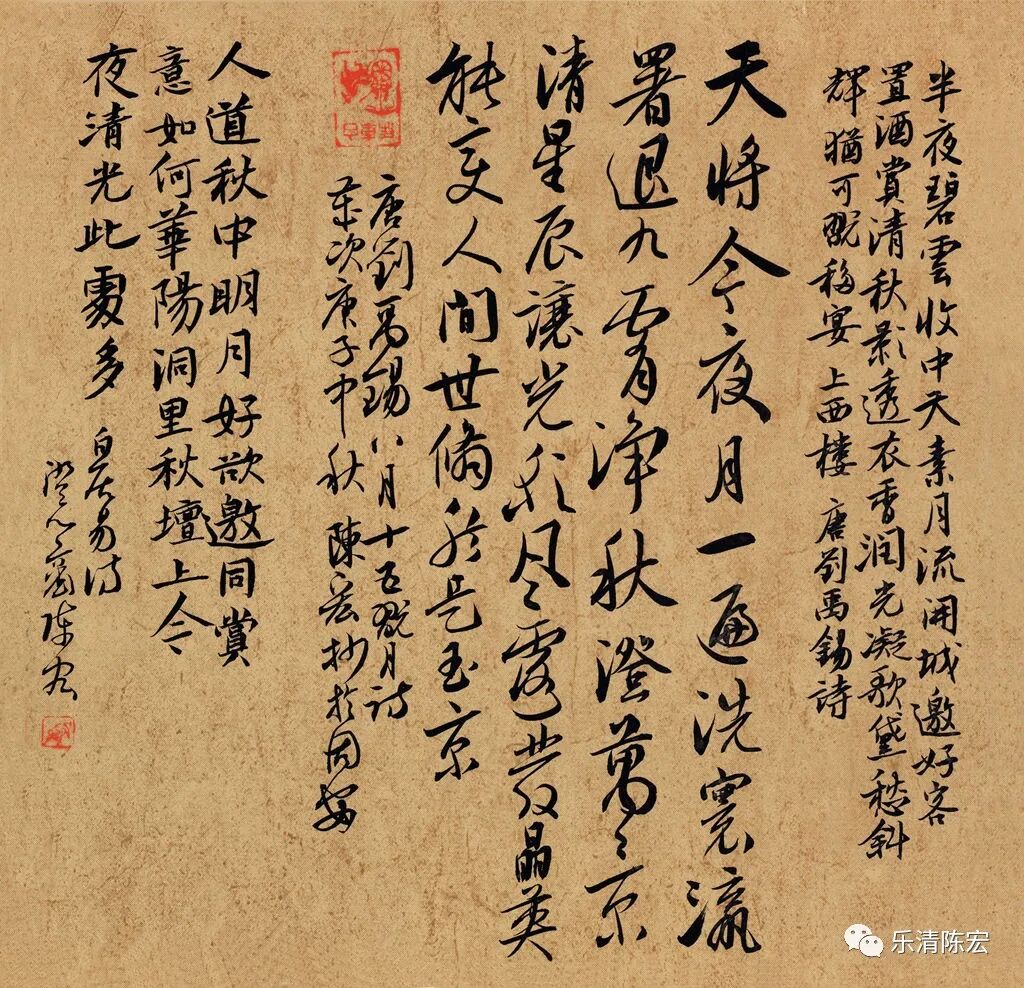 半夜碧雲收中天素月流開城邀好客
置酒賞清秋影透衣香潤光凝歌黛愁斜
輝猶可翫移宴上西樓 唐劉禹錫詩
天將今夜月一遍洗寰瀛
署退九霄淨秋澄萬〻京
清星辰讓光彩風露發晶英
能变人間世翛然是玉京
唐劉禹錫八月十五翫月詩
歲次庚子中秋 陳宏抄於
人道秋中明月好欲邀同賞
意如何華陽洞里秋壇上今
夜清光此處多 白居易詩
陳宏
乐清陈宏